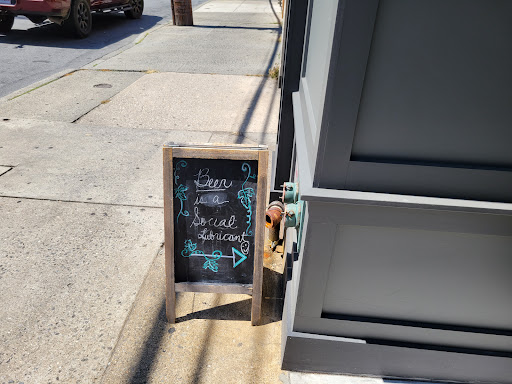 Beer
is a
Social
Lubricant